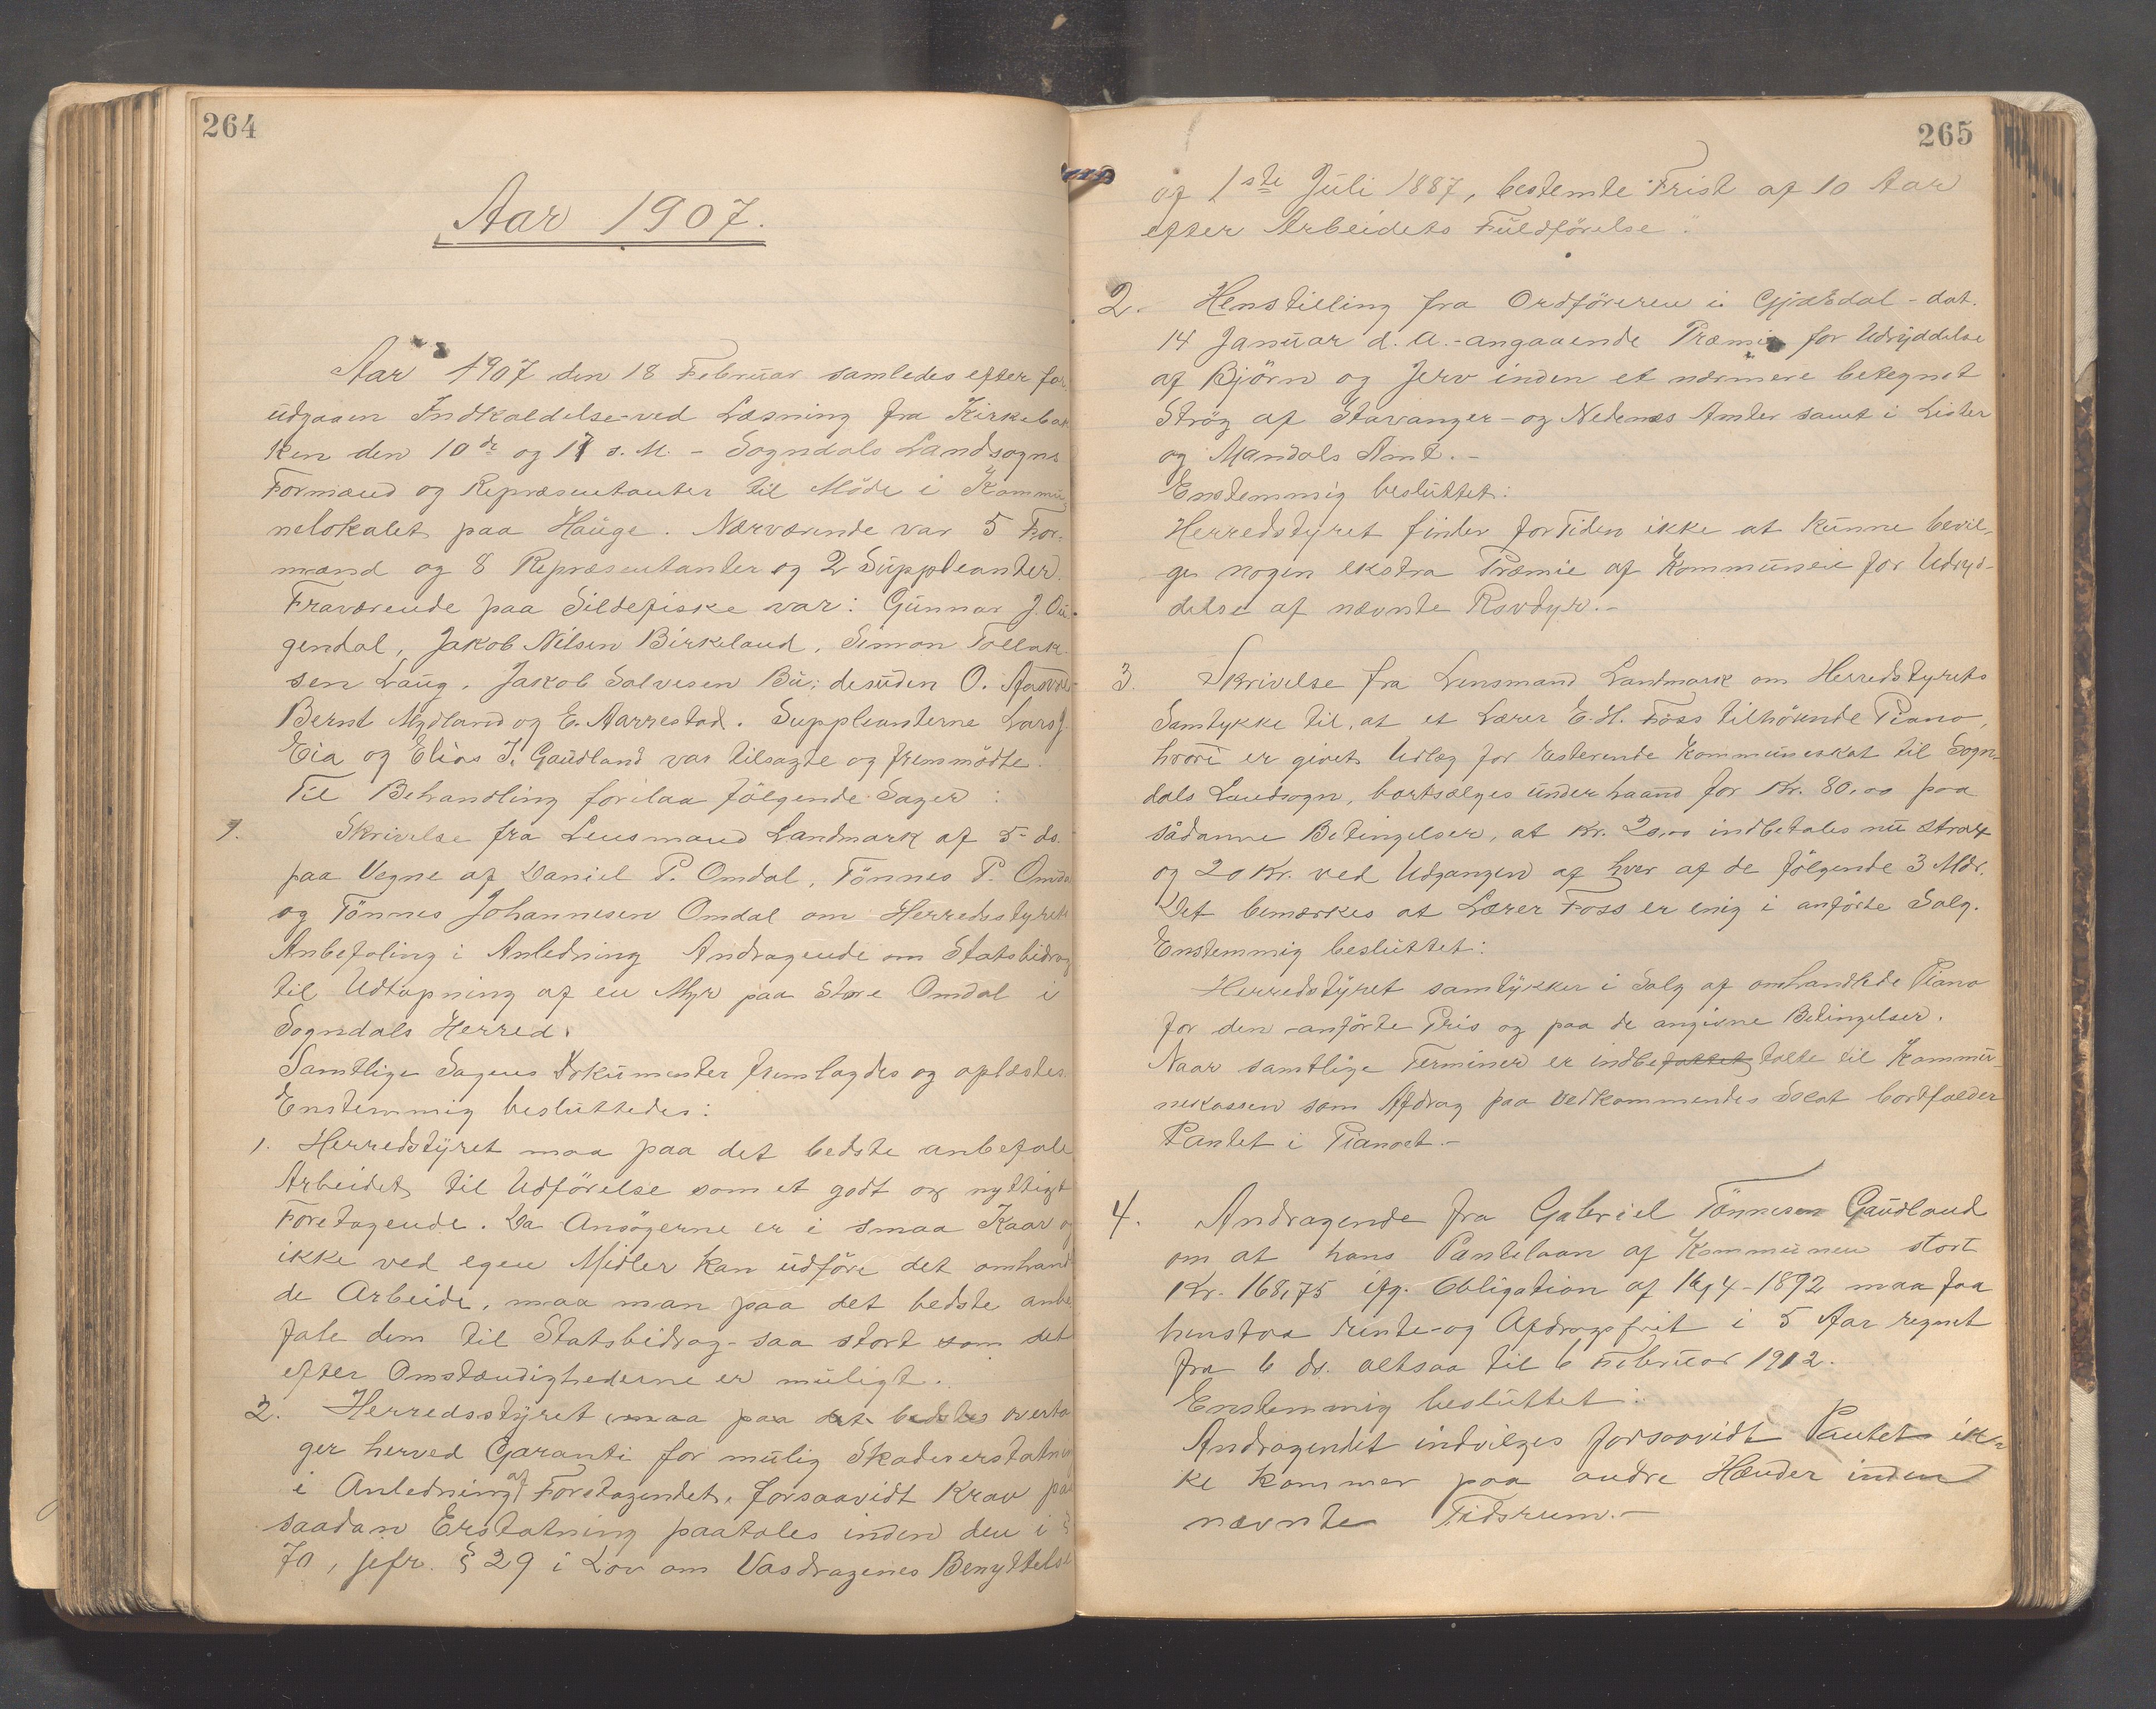 264
Aar 1907.
Aar 1907 den 18 Februar samledes efter for-
udgaaen Indkaldelse ved Læsning fra Kirkebak
ken den 10de og 17 s. M. - Sogndals Landsogns
Formænd og Repræsentanter til Möde i Kommu
nelokalet paa Hauge. Nærværende var 5 For-
mænd og 8 Repræsentanter og 2 Suppleanter.
Fraværende paa Sildefiske var: Gunnar J. Ou-
gendal, Jakob Nilsen Birkeland, Simon Tollak
sen Laug, Jakob Salvesen Bu; desuden O.
Bernt Mydland og E. Aarrestad. Suppleanterne Lars J.
Eia og Elias T. Gaudland var tilsagte og fremmödte.
Til Behandling forelaa fölgende Sager:
1. Skrivelse fra Lensmand Landmark af 5 ds.
paa Vegne af Daniel P. Omdal, Tönnes P. Omda
og Tönnes Johannesen Omdal om Herredsstyrets
Anbefaling i Anledning Andragende om Statsbidrag
til Udtapning af en Myr paa Store Omdal i
Sogndals Herred.
Samtlige Sagens Dokumenter fremlagdes og oplæstes
Enstemmig besluttedes:
1. Herredstyret maa paa det bedste anbefale
Arbeidet til Udförelse som et godt og nyttigt
Foretagende. Da Ansögerne er i smaa Kaar og
ikke ved egen Midler kan udföre det omhand
de Arbeide, maa man paa det bedste anbe
fale dem til Statsbidrag saa stort som det
efter Omstændighederne er muligt.
2. Herredsstyret maa paa det bedstes overta
ger herved Garanti for mulig Skadeserstatning
i Anledning af Foretagendet, forsaavidt Krav paa
saadan Erstatning paatales inden den i §
70, jefr. § 29 i Lov om Vasdragenes Benyttelse
265
af 1ste Juli 1887, bestemte Frist af 10 Aar
efter Arbeidets Fuldförelse".
2. Henstilling fra Ordföreren i Gjæsdal - dat.
14 Januar d. A. - angaaende Præmie for Udryddelse
af Björn og Jerv inden et nærmere betegnet
Strög af Stavanger - og Nedenæs Amter samt i Lister
og Mandals Amt. -
Enstemmig besluttet:
Herredstyret finder for Tiden ikke at kunne bevil-
ge nogen ekstra Præmie af Kommunen for Udryd-
delse af nævnte Rovdyr. -
3. Skrivelse fra Lensmand Landmark om Herredstyrets
Samtykke til, at et Lærer E. H. Foss tilhörende Piano,
hvori er givet Udlæg for resterende Kommuneskat til Sogn-
dals Landsogn, bortsælges underhaand for Kr. 80,00 paa
sådanne Betingelser, at Kr. 20,00 indbetales nu strax
og 20 Kr. ved Udgangen af hver af de fölgende 3 Mdr.
Det bemærkes at Lærer Foss er enig i anförte Salg.
Enstemmig besluttet:
Herredstyret samtykker i Salg af omhandlede Piano
for den anförte Pris og paa de angivne Betingelser.
Naar samtlige Terminer er indbefattet talte til Kommu-
nekassen som Afdrag paa vedkommendes Skat bortfalder
Pantet i Pianoet. -
4. Andragende fra Gabriel Tönnesen Gaudland
om at hans Pantelaan af Kommunen stort
Kr. 168,75 ifg. Obligation af 16/4 - 1892 maa faa
henstaa rente- og Afdragsfrit i 5 Aar regnet
fra 6 ds. altsaa til 6 Februar 1912.
Enstemmig besluttet:
Andragendet indvilges forsaavidt Pantet ik-
ke kommer paa andre Hænder inden
nævnte Tidsrum. -